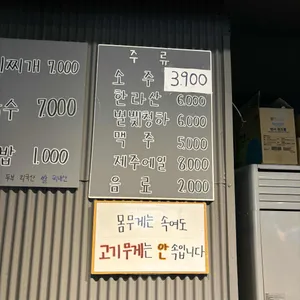 찌개 7.000
수 7.000
밥 1.000
주 류
소 주 3.900
한라산 6.000
별빛청하 6.000
맥 주 5.000
제주에일 8.000
음 료 2.000
몸무게는 속여도
고기무게는 안속입니다